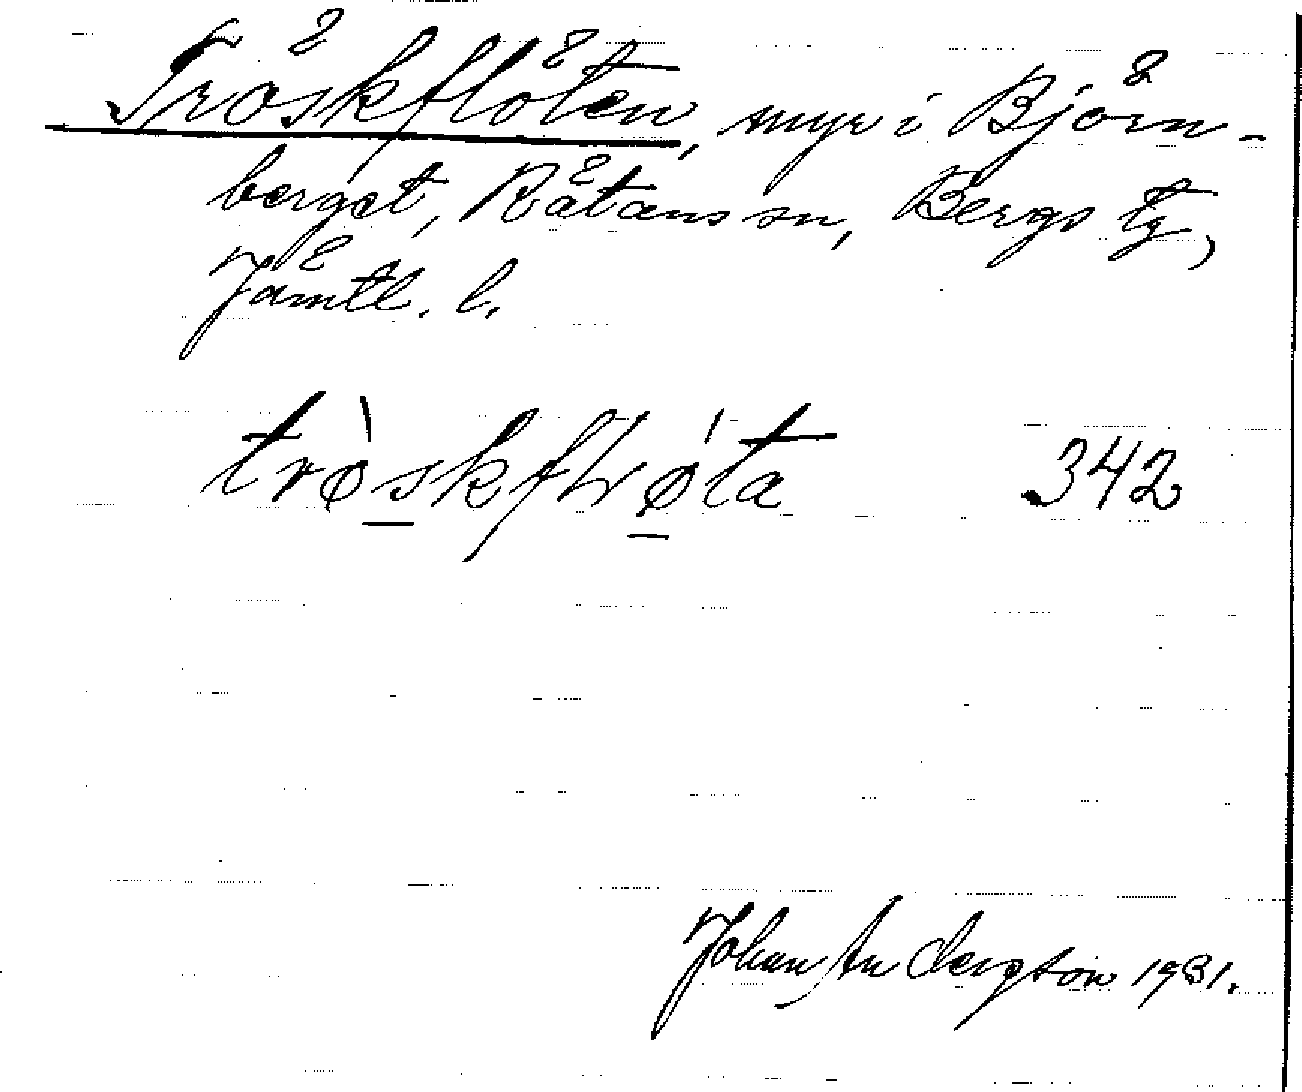 Tröskflöten, myr i Björn-
berget, Råtans sn, Bergs tg,
Jämtl. l.
trøskfløta 342
Johan An dersson 1931.